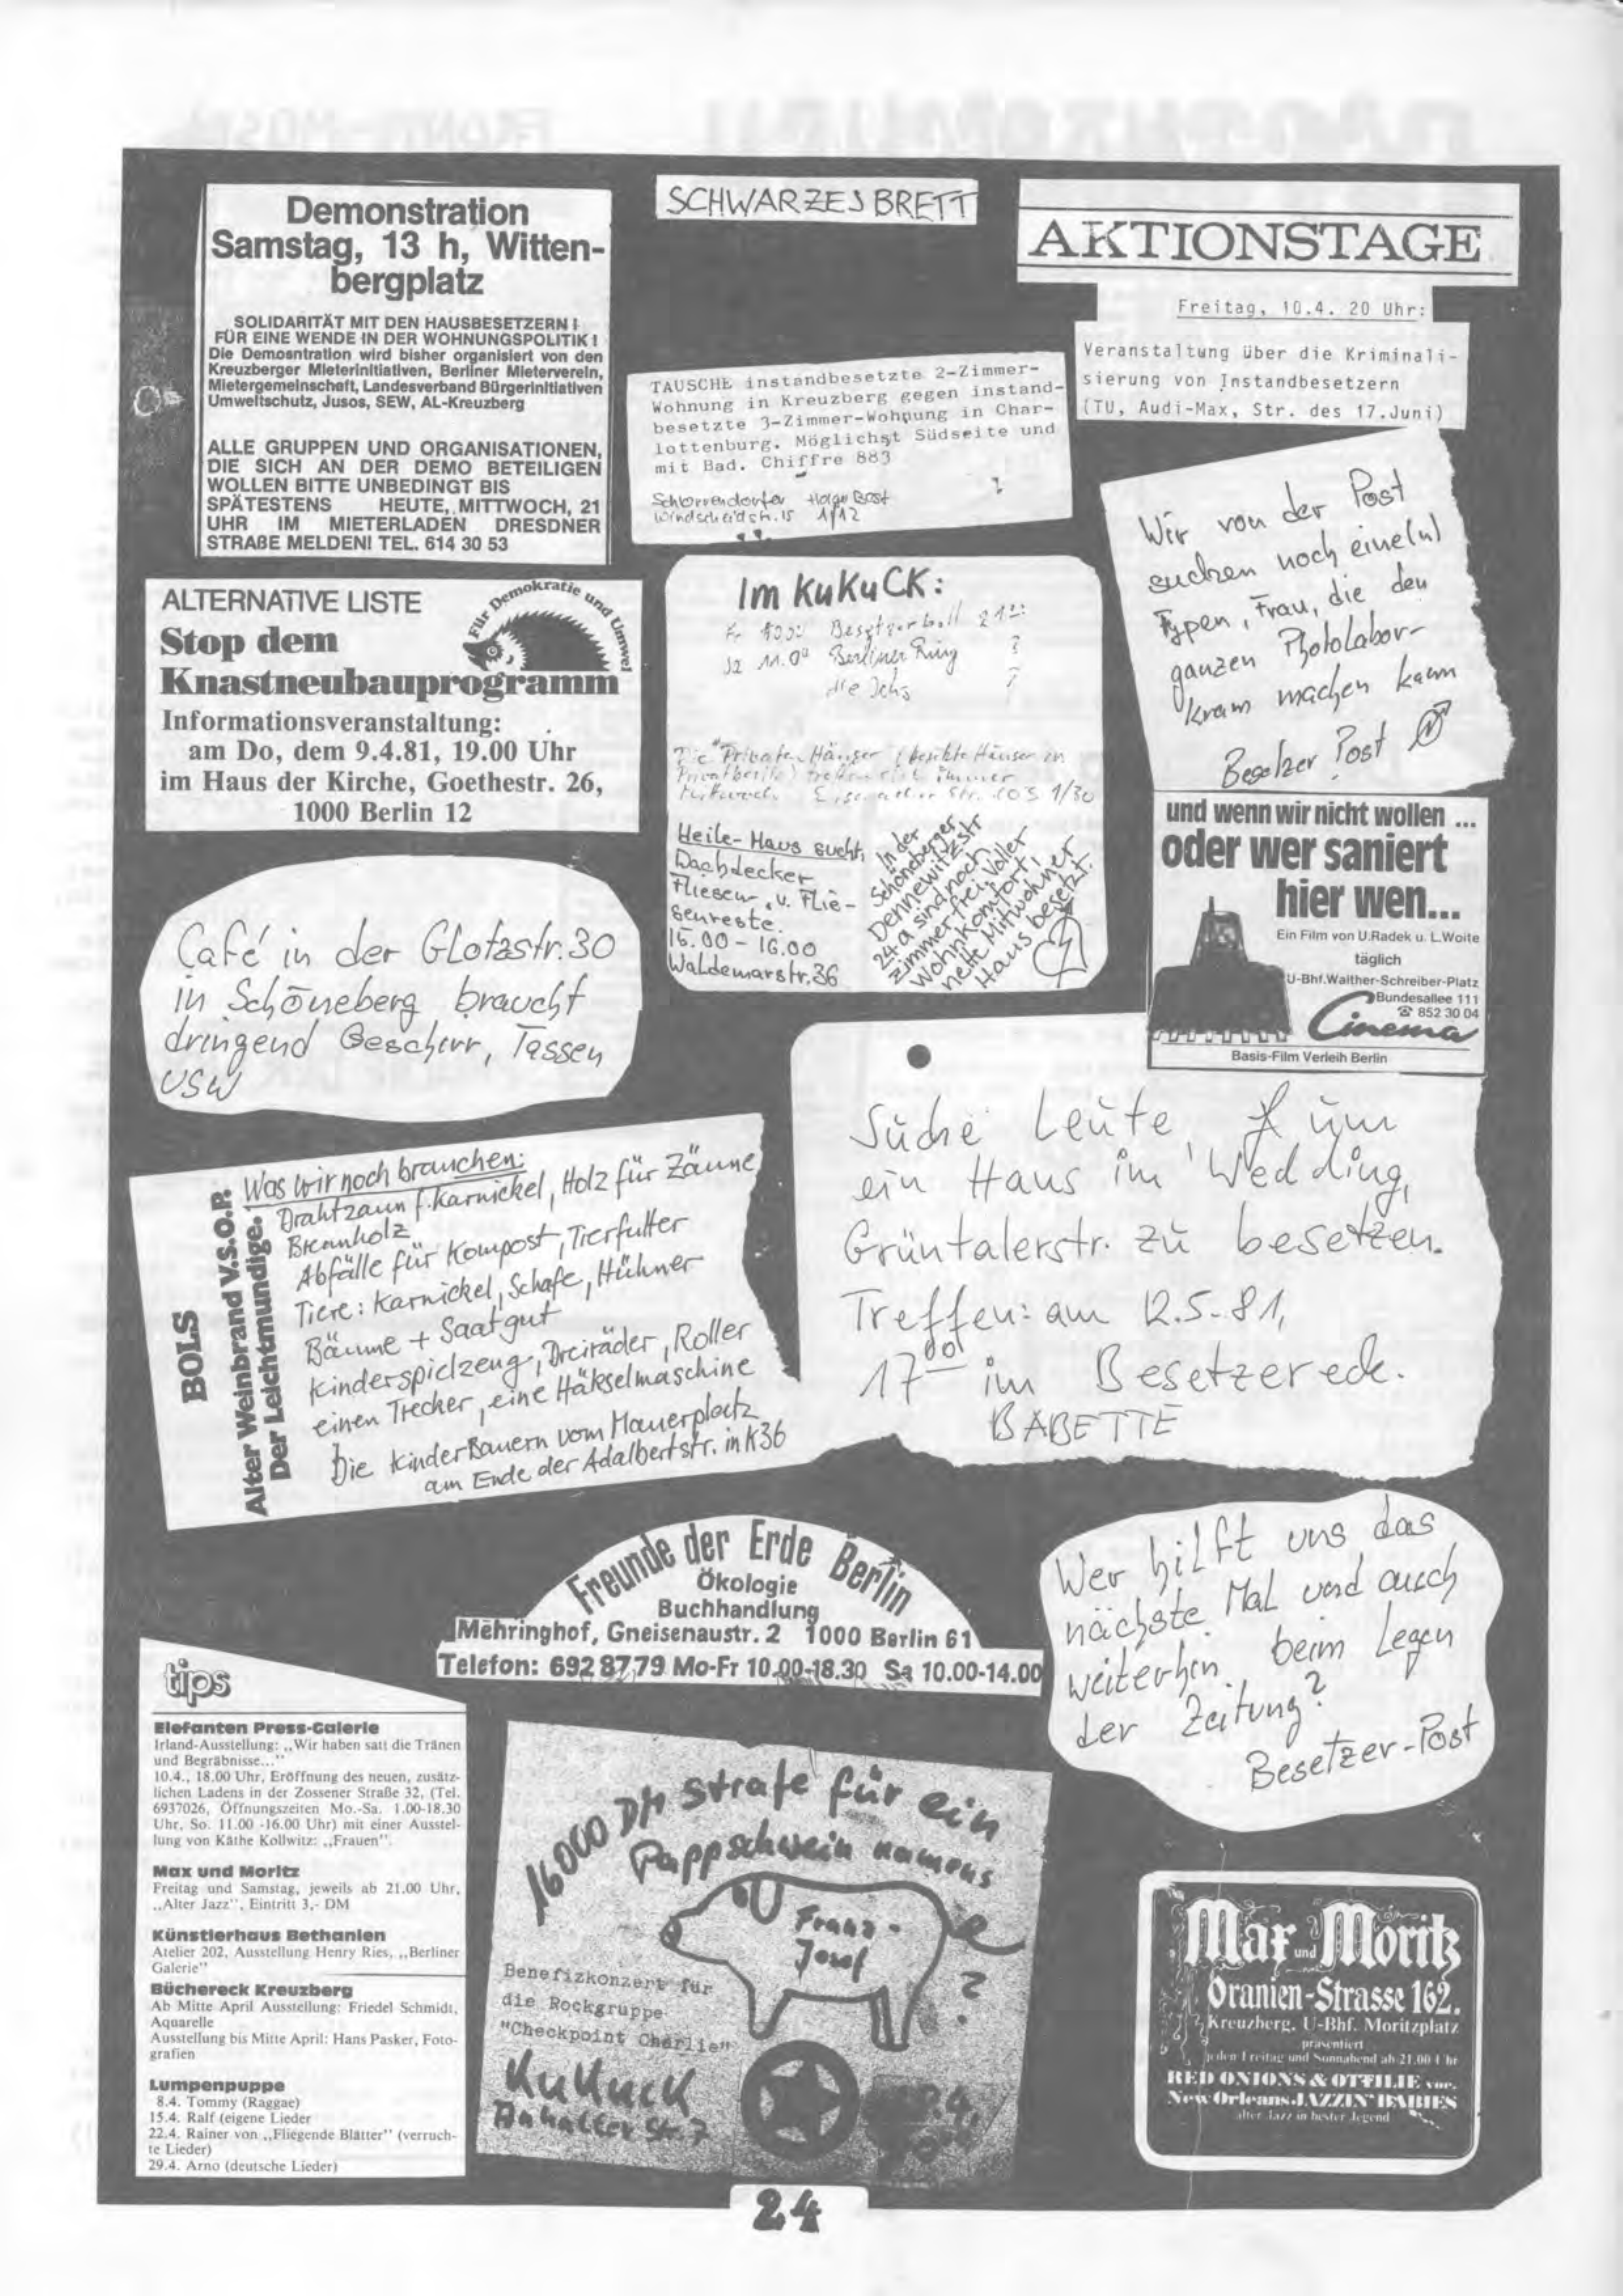 SCHWARZES BRETT
Demonstration
Samstag, 13 h, Witten-
bergplatz
SOLIDARITÄT MIT DEN HAUSBESETZERN !
FÜR EINE WENDE IN DER WOHNUNGSPOLITIK !
Die Demosntration wird bisher organisiert von den
Kreuzberger Mieterinitiativen, Berliner Mieterverein,
Mietergemeinschaft, Landesverband Bürgerinitiativen
Umweltschutz, Jusos, SEW, AL-Kreuzberg
ALLE GRUPPEN UND ORGANISATIONEN,
DIE SICH AN DER DEMO BETEILIGEN
WOLLEN BITTE UNBEDINGT BIS
SPÄTESTENS HEUTE, MITTWOCH, 21
UHR IM MIETERLADEN DRESDNER
STRAßE MELDEN! TEL. 614 30 53
AKTIONSTAGE
Freitag, 10.4. 20 Uhr:
Veranstaltung über die Kriminali-
sierung von Instandbesetzern
(TU, Audi-Max, Str. des 17.Juni)
TAUSCHE instandbesetzte 2-Zimmer-
Wohnung in Kreuzberg gegen instand-
besetzte 3-Zimmer-Wohnung in Char-
lottenburg. Möglichst Südseite und
mit Bad. Chiffre 883
Windscheidstr. 15 1/12
Wir von der Post
suchen noch eine(n)
Typen, Frau, die den
ganzen Photolabor-
kram machen kann
Besetzer Post
ALTERNATIVE LISTE
Für Demokratie und Umwel
Stop dem
Knastneubauprogramm
Informationsveranstaltung:
am Do, dem 9.4.81, 19.00 Uhr
im Haus der Kirche, Goethestr. 26,
1000 Berlin 12
Im KuKuCK:
Besetzerball 21
Sa 11.00 Berliner Ring ?
die Ichs ?
Die "Privaten Häuser (besetzte Häuser in
Privatbesitz) treffen sich immer
Mittwoch 1/30
Heile-Haus sucht,
Dachdecker
Fliesen, u. Flie-
senreste.
15.00 - 16.00
Waldemarstr. 36
In der
Schöneberger
Dennewitzstr
24a sind noch
Zimmer frei, voller
Wohnkomfort,
nette Mitwohner
Haus besetzt.
und wenn wir nicht wollen ...
oder wer saniert
hier wen...
Ein Film von U.Radek u. L.Woite
täglich
U-Bhf.Walther-Schreiber-Platz
Bundesallee 111
☎ 852 30 04
Cinema
Basis-Film Verleih Berlin
Café in der Glotzstr. 30
in Schöneberg braucht
dringend Geschirr, Tassen
USW
Suche Leute, um
ein Haus im Wedding,
Grüntalerstr. zu besetzen.
Treffen: am 12.5.81,
17 00 im Besetzereck.
BABETTE
BOLS
Alter Weinbrand V.S.O.P.
Der Leichtmundige.
Was wir noch brauchen:
Drahtzaun f. Karnickel, Holz für Zäune
Brennholz
Abfälle für Kompost, Tierfutter
Tiere: Karnickel, Schafe, Hühner
Bäume + Saatgut
Kinderspielzeug, Dreiräder, Roller
einen Trecker, eine Häkselmaschine
Die KinderBauern vom Mauerplatz
am Ende der Adalbertstr. in K36
Freunde der Erde Berlin
Ökologie
Buchhandlung
Mehringhof, Gneisenaustr. 2 1000 Berlin 61
Telefon: 692 87 79 Mo-Fr 10.00-18.30 Sa 10.00-14.00
Wer hilft uns das
nächste Mal und auch
weiterhin beim Legen
der Zeitung?
Besetzer-Post
tips
Elefanten Press-Galerie
Irland-Ausstellung: „Wir haben satt die Tränen
und Begräbnisse..."
10.4., 18.00 Uhr, Eröffnung des neuen, zusätz-
lichen Ladens in der Zossener Straße 32, (Tel.
6937026, Öffnungszeiten Mo.-Sa. 1.00-18.30
Uhr, So. 11.00 -16.00 Uhr) mit einer Ausstel-
lung von Käthe Kollwitz: „Frauen".
Max und Moritz
Freitag und Samstag, jeweils ab 21.00 Uhr,
„Alter Jazz", Eintritt 3,- DM
Künstlerhaus Bethanien
Atelier 202, Ausstellung Henry Ries, „Berliner
Galerie"
Büchereck Kreuzberg
Ab Mitte April Ausstellung: Friedel Schmidt,
Aquarelle
Ausstellung bis Mitte April: Hans Pasker, Foto-
grafien
Lumpenpuppe
8.4. Tommy (Raggae)
15.4. Ralf (eigene Lieder
22.4. Rainer von „Fliegende Blätter" (verruch-
te Lieder)
29.4. Arno (deutsche Lieder)
16000 DM Strafe für ein
Pappschwein namens
Franz-
Josef
?
Benefizkonzert für
die Rockgruppe
"Checkpoint Charlie"
KuKuck
Anhalter Str. 7
Max und Moritz
Oranien-Strasse 162.
Kreuzberg, U-Bhf. Moritzplatz
präsentiert
jeden Freitag und Sonnabend ab 21.00 Uhr
RED ONIONS & OTTILIE vor.
New Orleans JAZZIN' BABIES
alter Jazz in bester Jegend
24